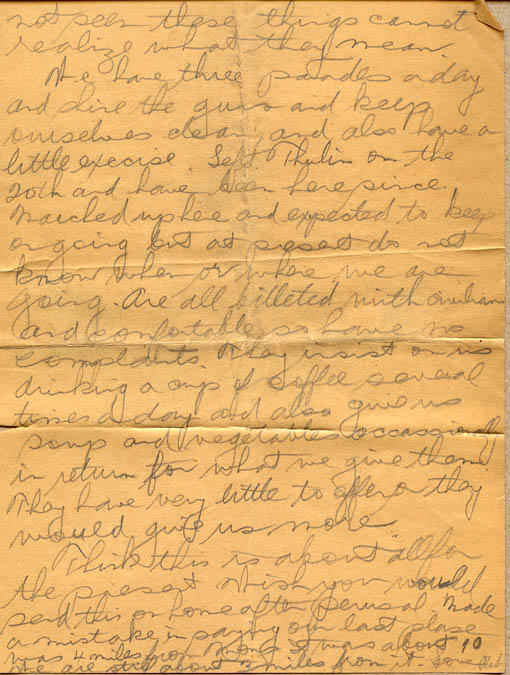 not seen these things cannot
realize what they mean.
We have three parades a day
and shine the guns and keep
ourselves clean and also have a
little excise. Left Thulin on the
20th and have been here since.
Marched up here and expected to keep
on going but at present do not
know when or where we are
going. Are all billeted with civilians
and comfortable so have no
complaints. They insist on us
drinking a cup of coffee several
times a day and also give us
soup and vegetables occassionally
in return for what we give them
They have very little to offer or they
would give us more
Think this is about all for
the present. Wish you would
send this on home after perusal. Made
a mistake in saying our last place
was 4 miles from Mons it was about 10
We are still about 3 miles from it. Love